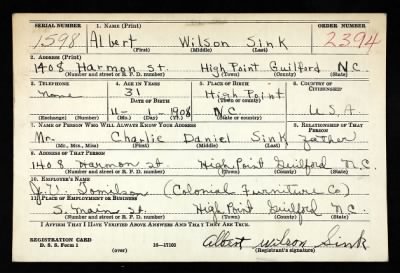 SERIAL NUMBER 1. NAME (Print) ORDER NUMBER
1598 Albert Wilson Sink 2394
(First) (Middle) (Last)
2. ADDRESS (Print)
1408 Harmon St. High Point Guilford N.C.
(Number and street or R. F. D. number) (Town) (County) (State)
3. TELEPHONE 4. AGE IN YEARS 5. PLACE OF BIRTH 6. COUNTRY OF CITIZENSHIP
None 31 High Point
DATE OF BIRTH (Town or county)
11- 1908 N.C. U.S.A
(Exchange) (No.) (Mo.) (Day) (Yr.) (State or country)
7. NAME OF PERSON WHO WILL ALWAYS KNOW YOUR ADDRESS 8. RELATIONSHIP OF THAT PERSON
Mr. Charlie Daniel Sink Father
(Mr., Mrs., Miss) (First) (Middle) (Last)
9. ADDRESS OF THAT PERSON
1408 Harmon St High Point Guilford N.C.
(Number and street or R. F. D. number) (Town) (County) (State)
10. EMPLOYER'S NAME
Tomlison (Colonial Furniture Co)
11. PLACE OF EMPLOYMENT OR BUSINESS
S. Main St High Point Guilford N.C.
(Number and street or R. F. D. number) (Town) (County) (State)
I AFFIRM THAT I HAVE VERIFIED ABOVE ANSWERS AND THAT THEY ARE TRUE.
REGISTRATION CARD
D. S. S. Form 1 16-17105 Albert Wilson Sink
(over) (Registrant's signature)